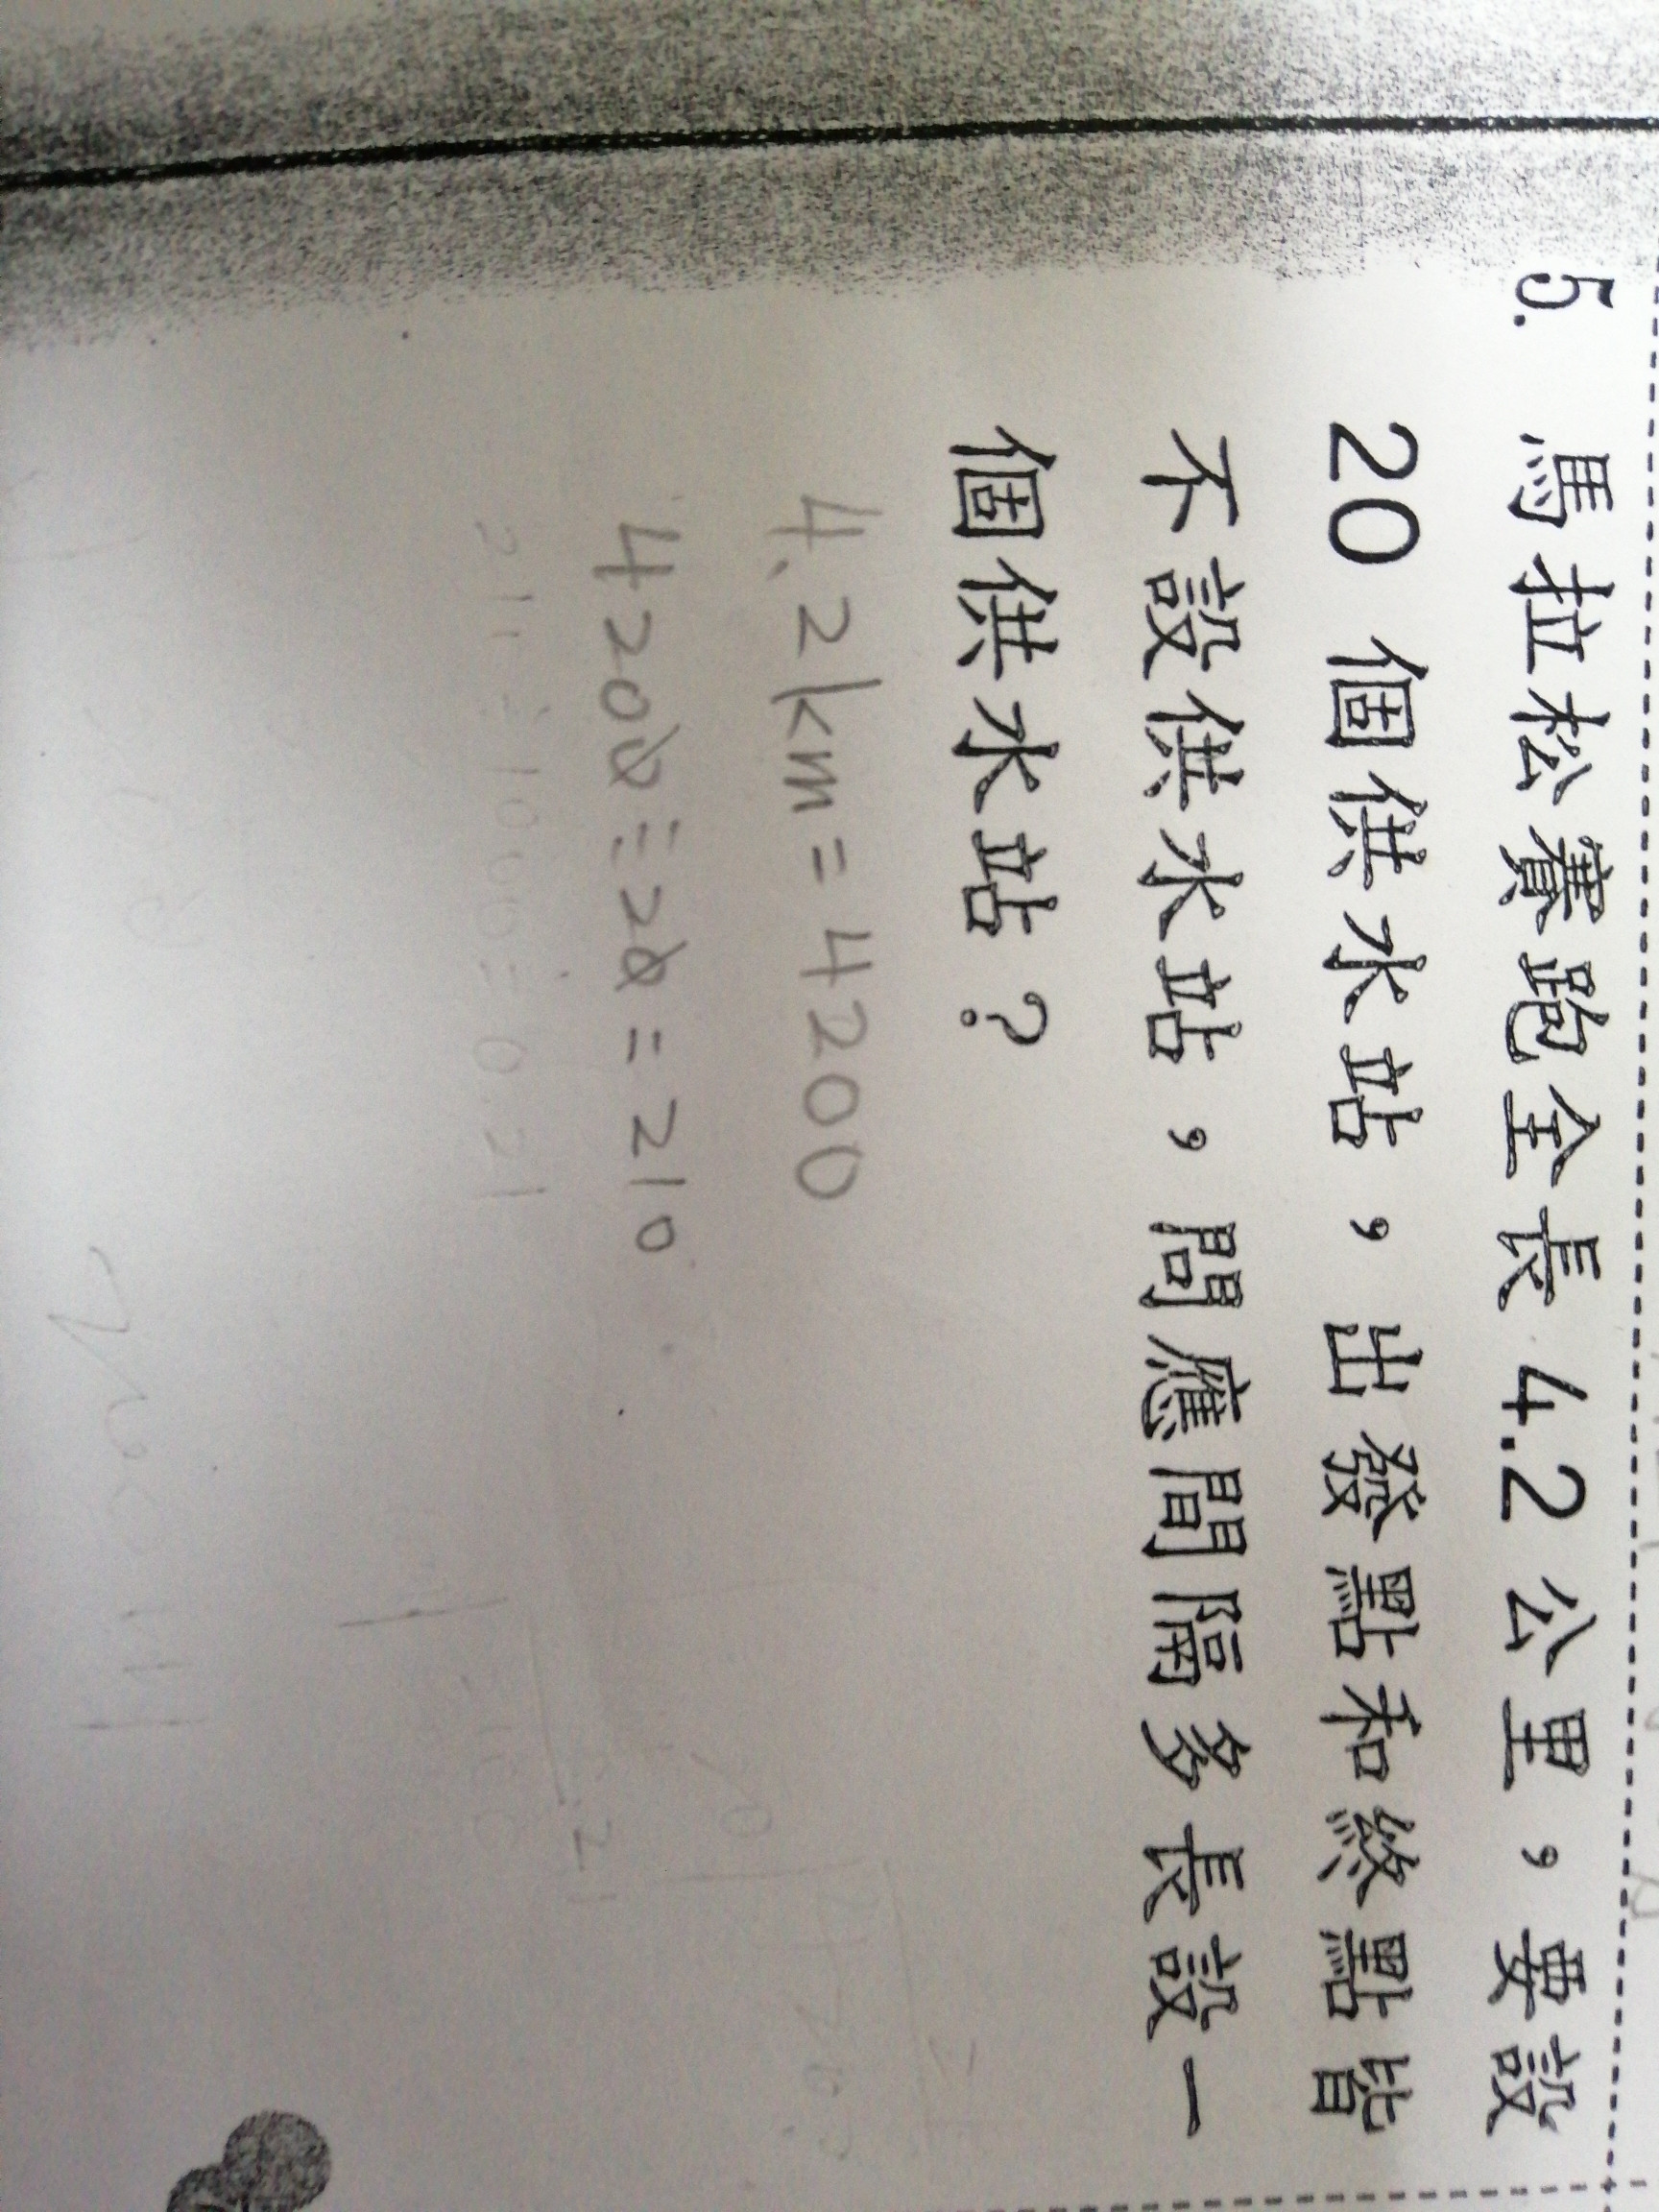 5. 馬拉松賽跑全長 4.2 公里，要設
20 個供水站，出發點和終點皆
不設供水站，問應間隔多長設一
個供水站？
4.2km=4200
4200÷20=210